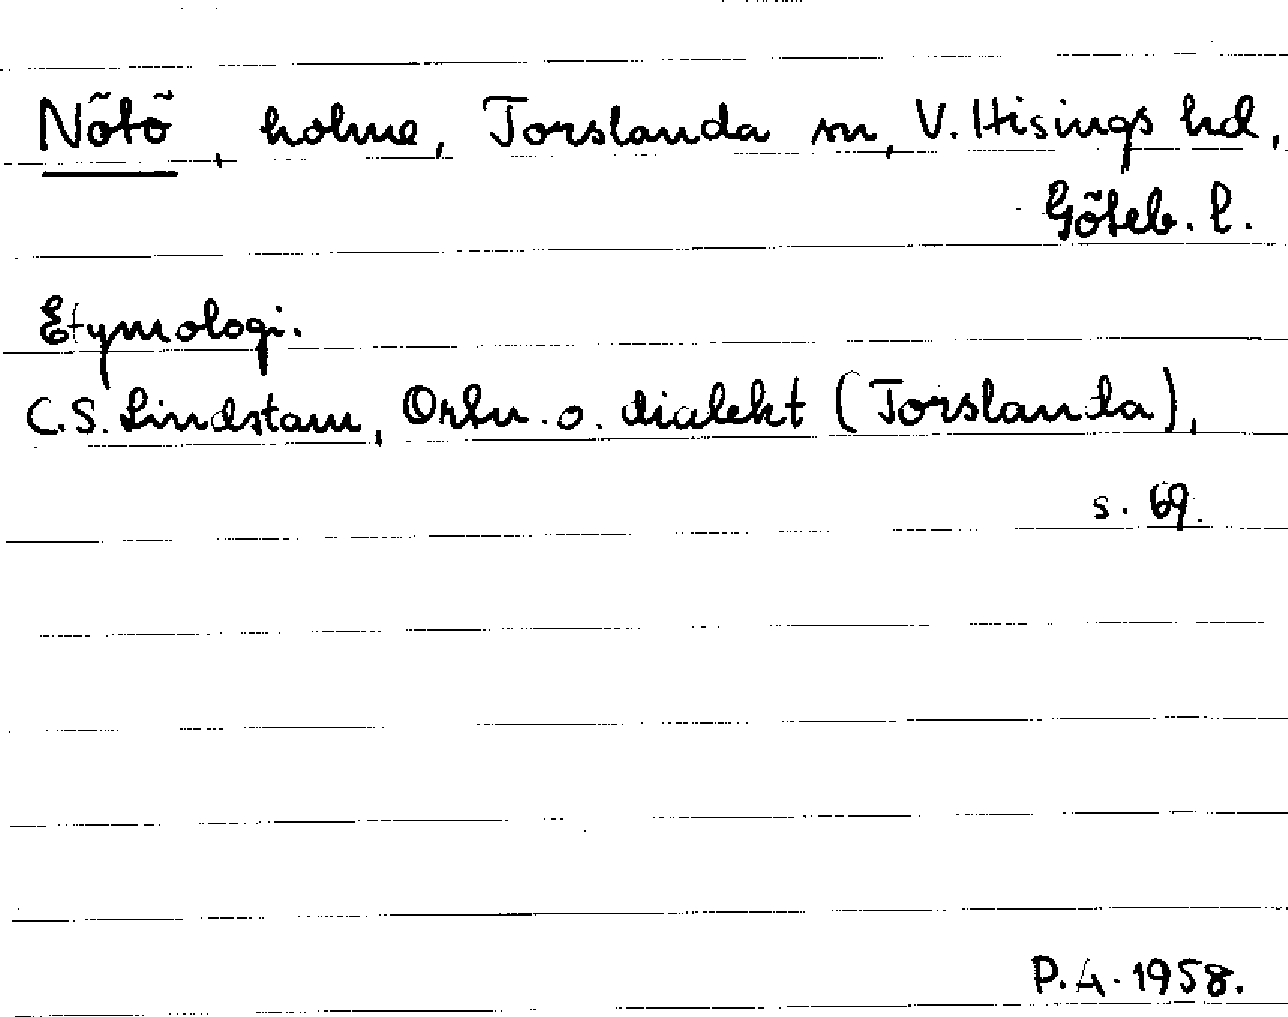 Nötö, holme, Torslanda sn, V. Hisings hd,
Göteb. l.
Etymologi.
C.S. Lindstam, Ortn. o. dialekt (Torslanda),
s. 69.
P.A. 1958.